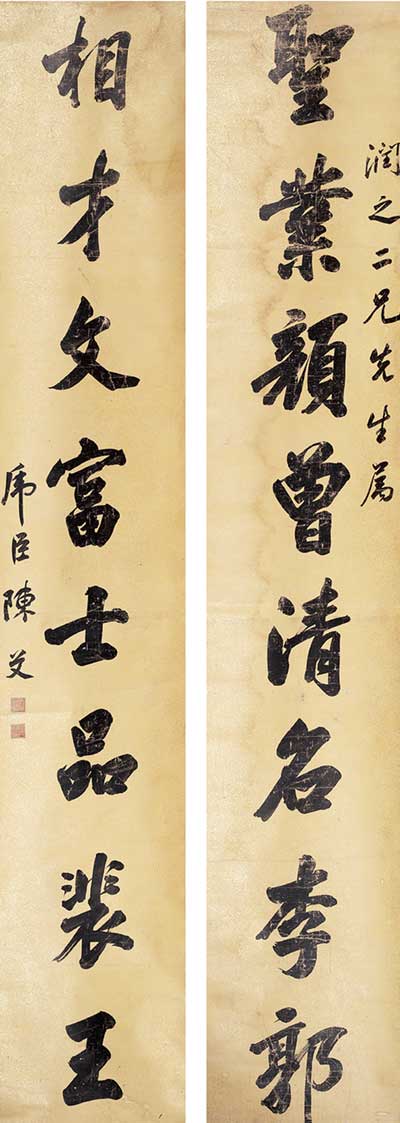 潤之二兄先生属
聖業顔曾清名李郭
相才文富士品裴王
虎臣陳艾